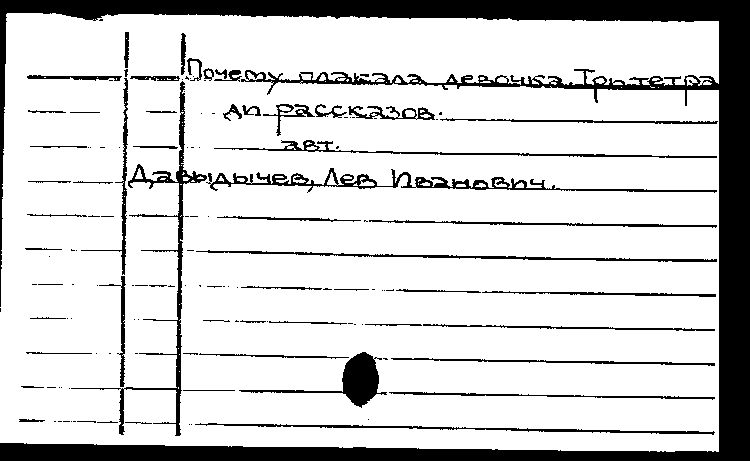 Почему плакала девочка. Три тетра
ди рассказов.
авт.
Давыдычев, Лев Иванович.